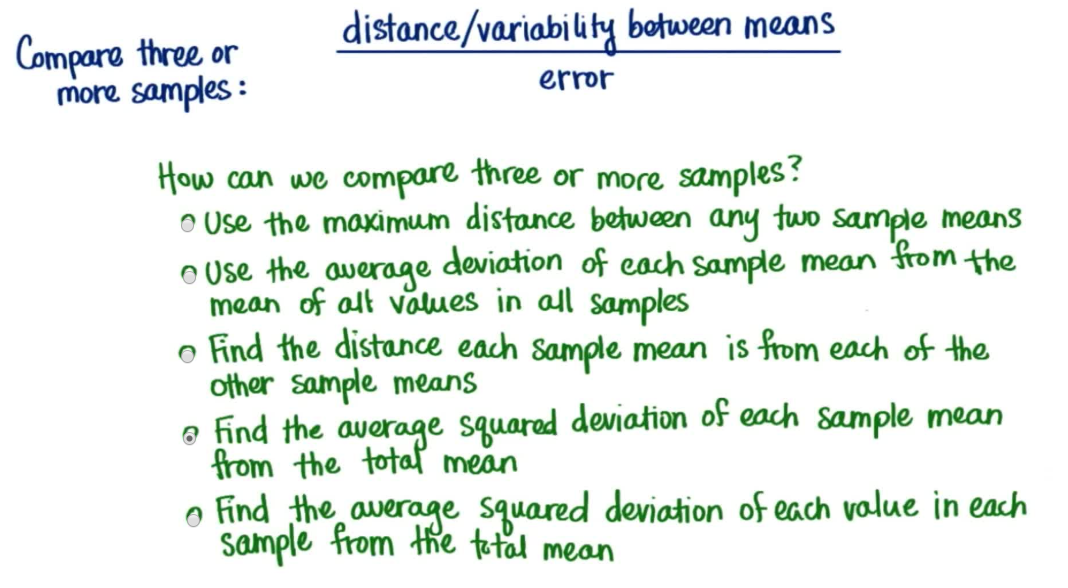 distance/variability between means
Compare three or
more samples:
error
How can we compare three or more samples?
Use the maximum distance between any two sample means
Use the average deviation of each sample mean from the
mean of all values in all samples
Find the distance each sample mean is from each of the
other sample means
Find the average squared deviation of each sample mean
from the total mean
Find the average squared deviation of each value in each
sample from the total mean